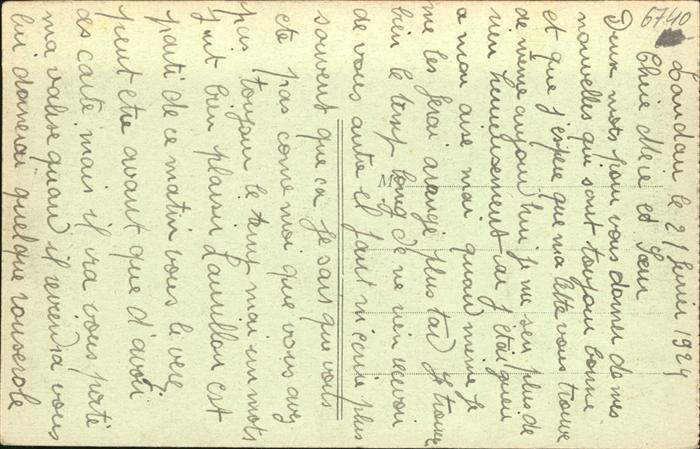 6740
Landau le 21 février 1924
Chère Mère et Sœur
Deux mots pour vous donner de mes
nouvelles qui sont toujour bonne
et que j'espère que ma lette vous trouve
de même aujourd'hui je ne sen plus de
rien heureusement car j'étai guerri
a mon aise mai quand meme je
me les ferai arangé plus tar je trouve
bien le temp long de ne rien recevoir
de vous autre il faut m'ecrire plus
souvent que ca je sais que vous
ete pas come moi que vous avez
pas toujour le temp mai un mots
fait bien plaisir Lavillon est
parti de ce matin vous le veré
peut etre avant que d'avoir
des carte mais il ira vous porté
ma valise quand il reviendra vous
lui donnerai quelque rouserole
M